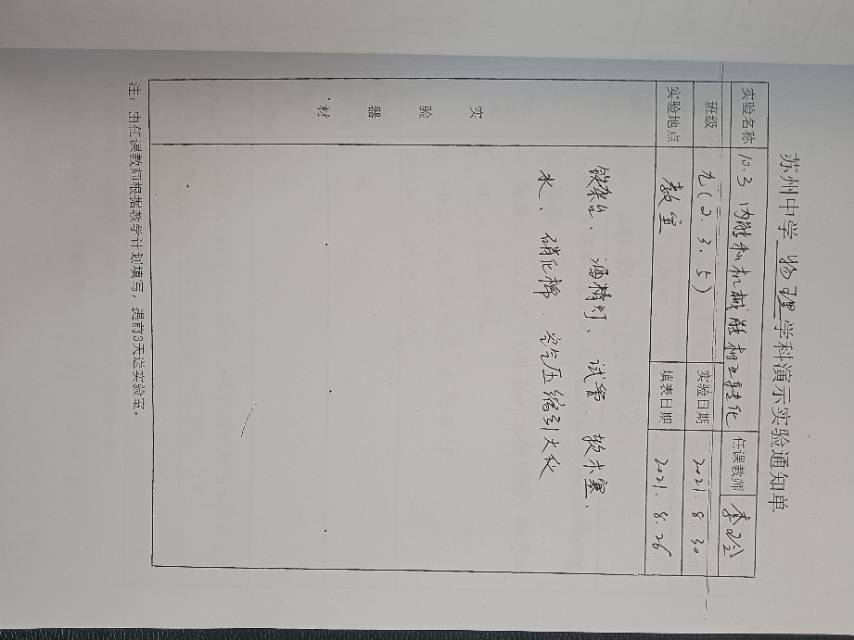 苏州中学 物理 学科演示实验通知单
实验名称 10.3 内能和机械能相互转化 任课教师 李
班级 九(2.3.5) 实验日期 2021.8.30
实验地点 教室 填表日期 2021.8.26
实验器材
铁架台、酒精灯、试管、软木塞、
水、硝化棉、空气压缩引火仪
注：由任课教师根据教学计划填写，提前3天送实验室。